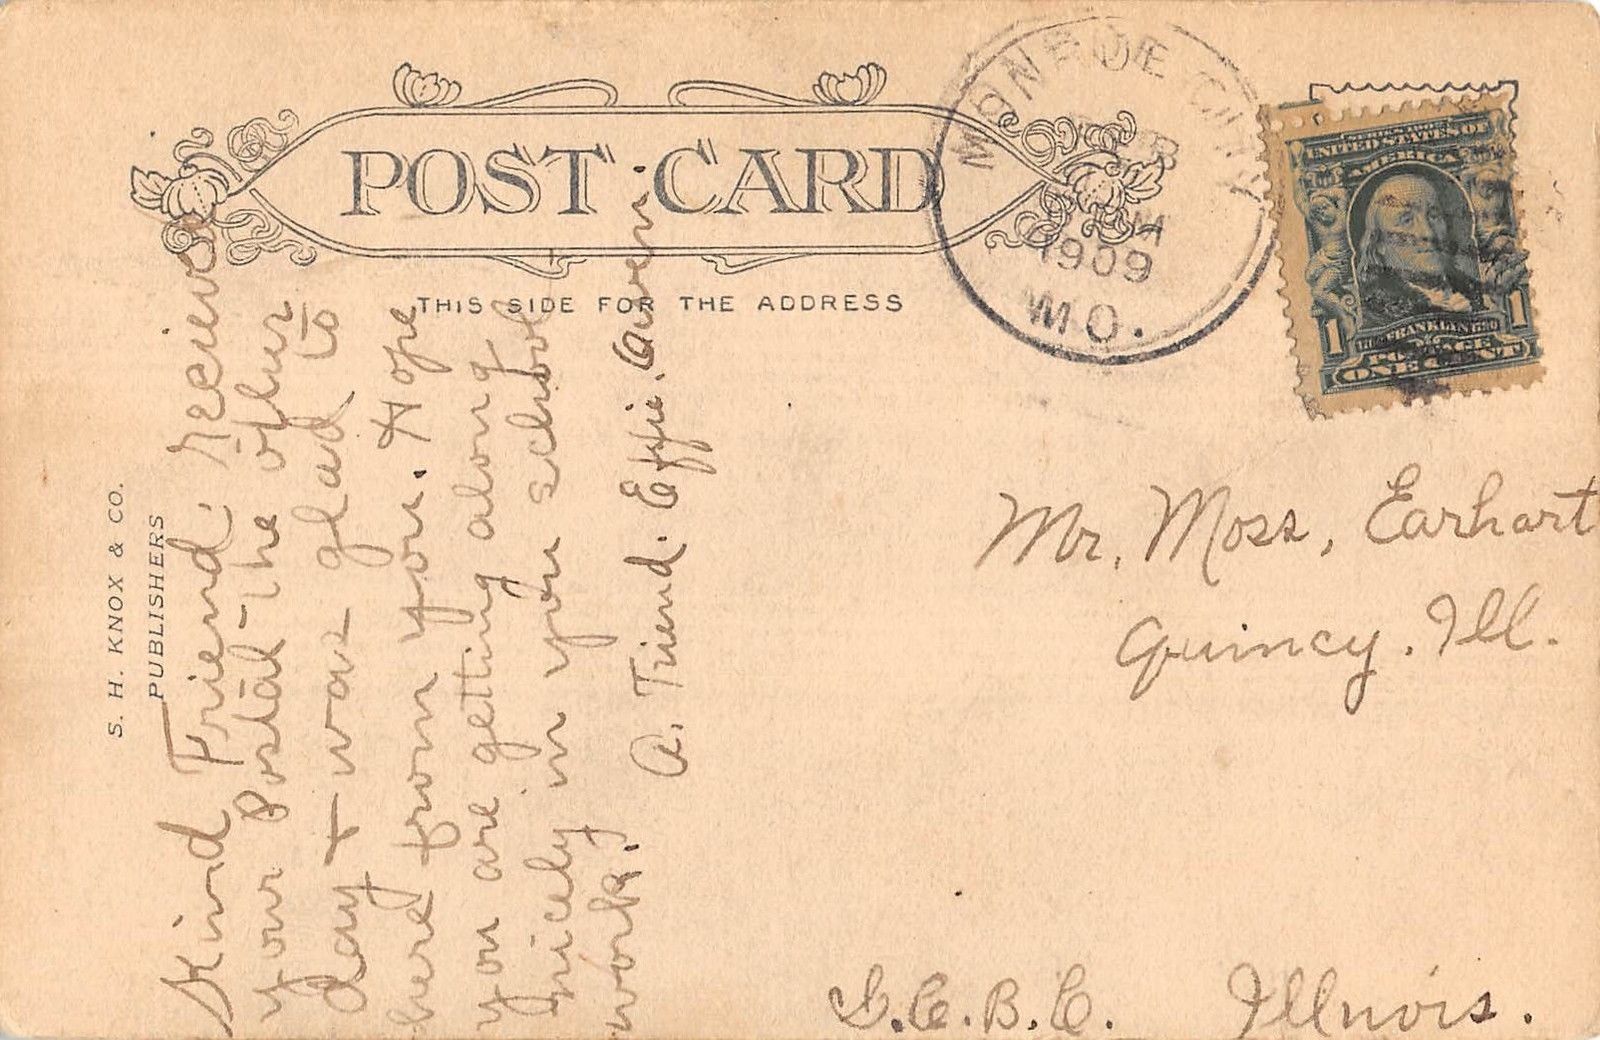 POST CARD
THIS SIDE FOR THE ADDRESS
MONROE CITY
FEB
M
1909
MO.
SERIES 1902
UNITED STATES OF
AMERICA
FRANKLIN
POSTAGE
1 1
ONE CENT
S. H. KNOX & CO.
PUBLISHERS
Kind Friend. recieved
your Postal the other
day + was glad to
here from you. Hope
you are getting along
nicely in you school
work.
A. Friend. Effie.
Mr. Moss, Earhart
Quincy. Ill.
B. Illnois.